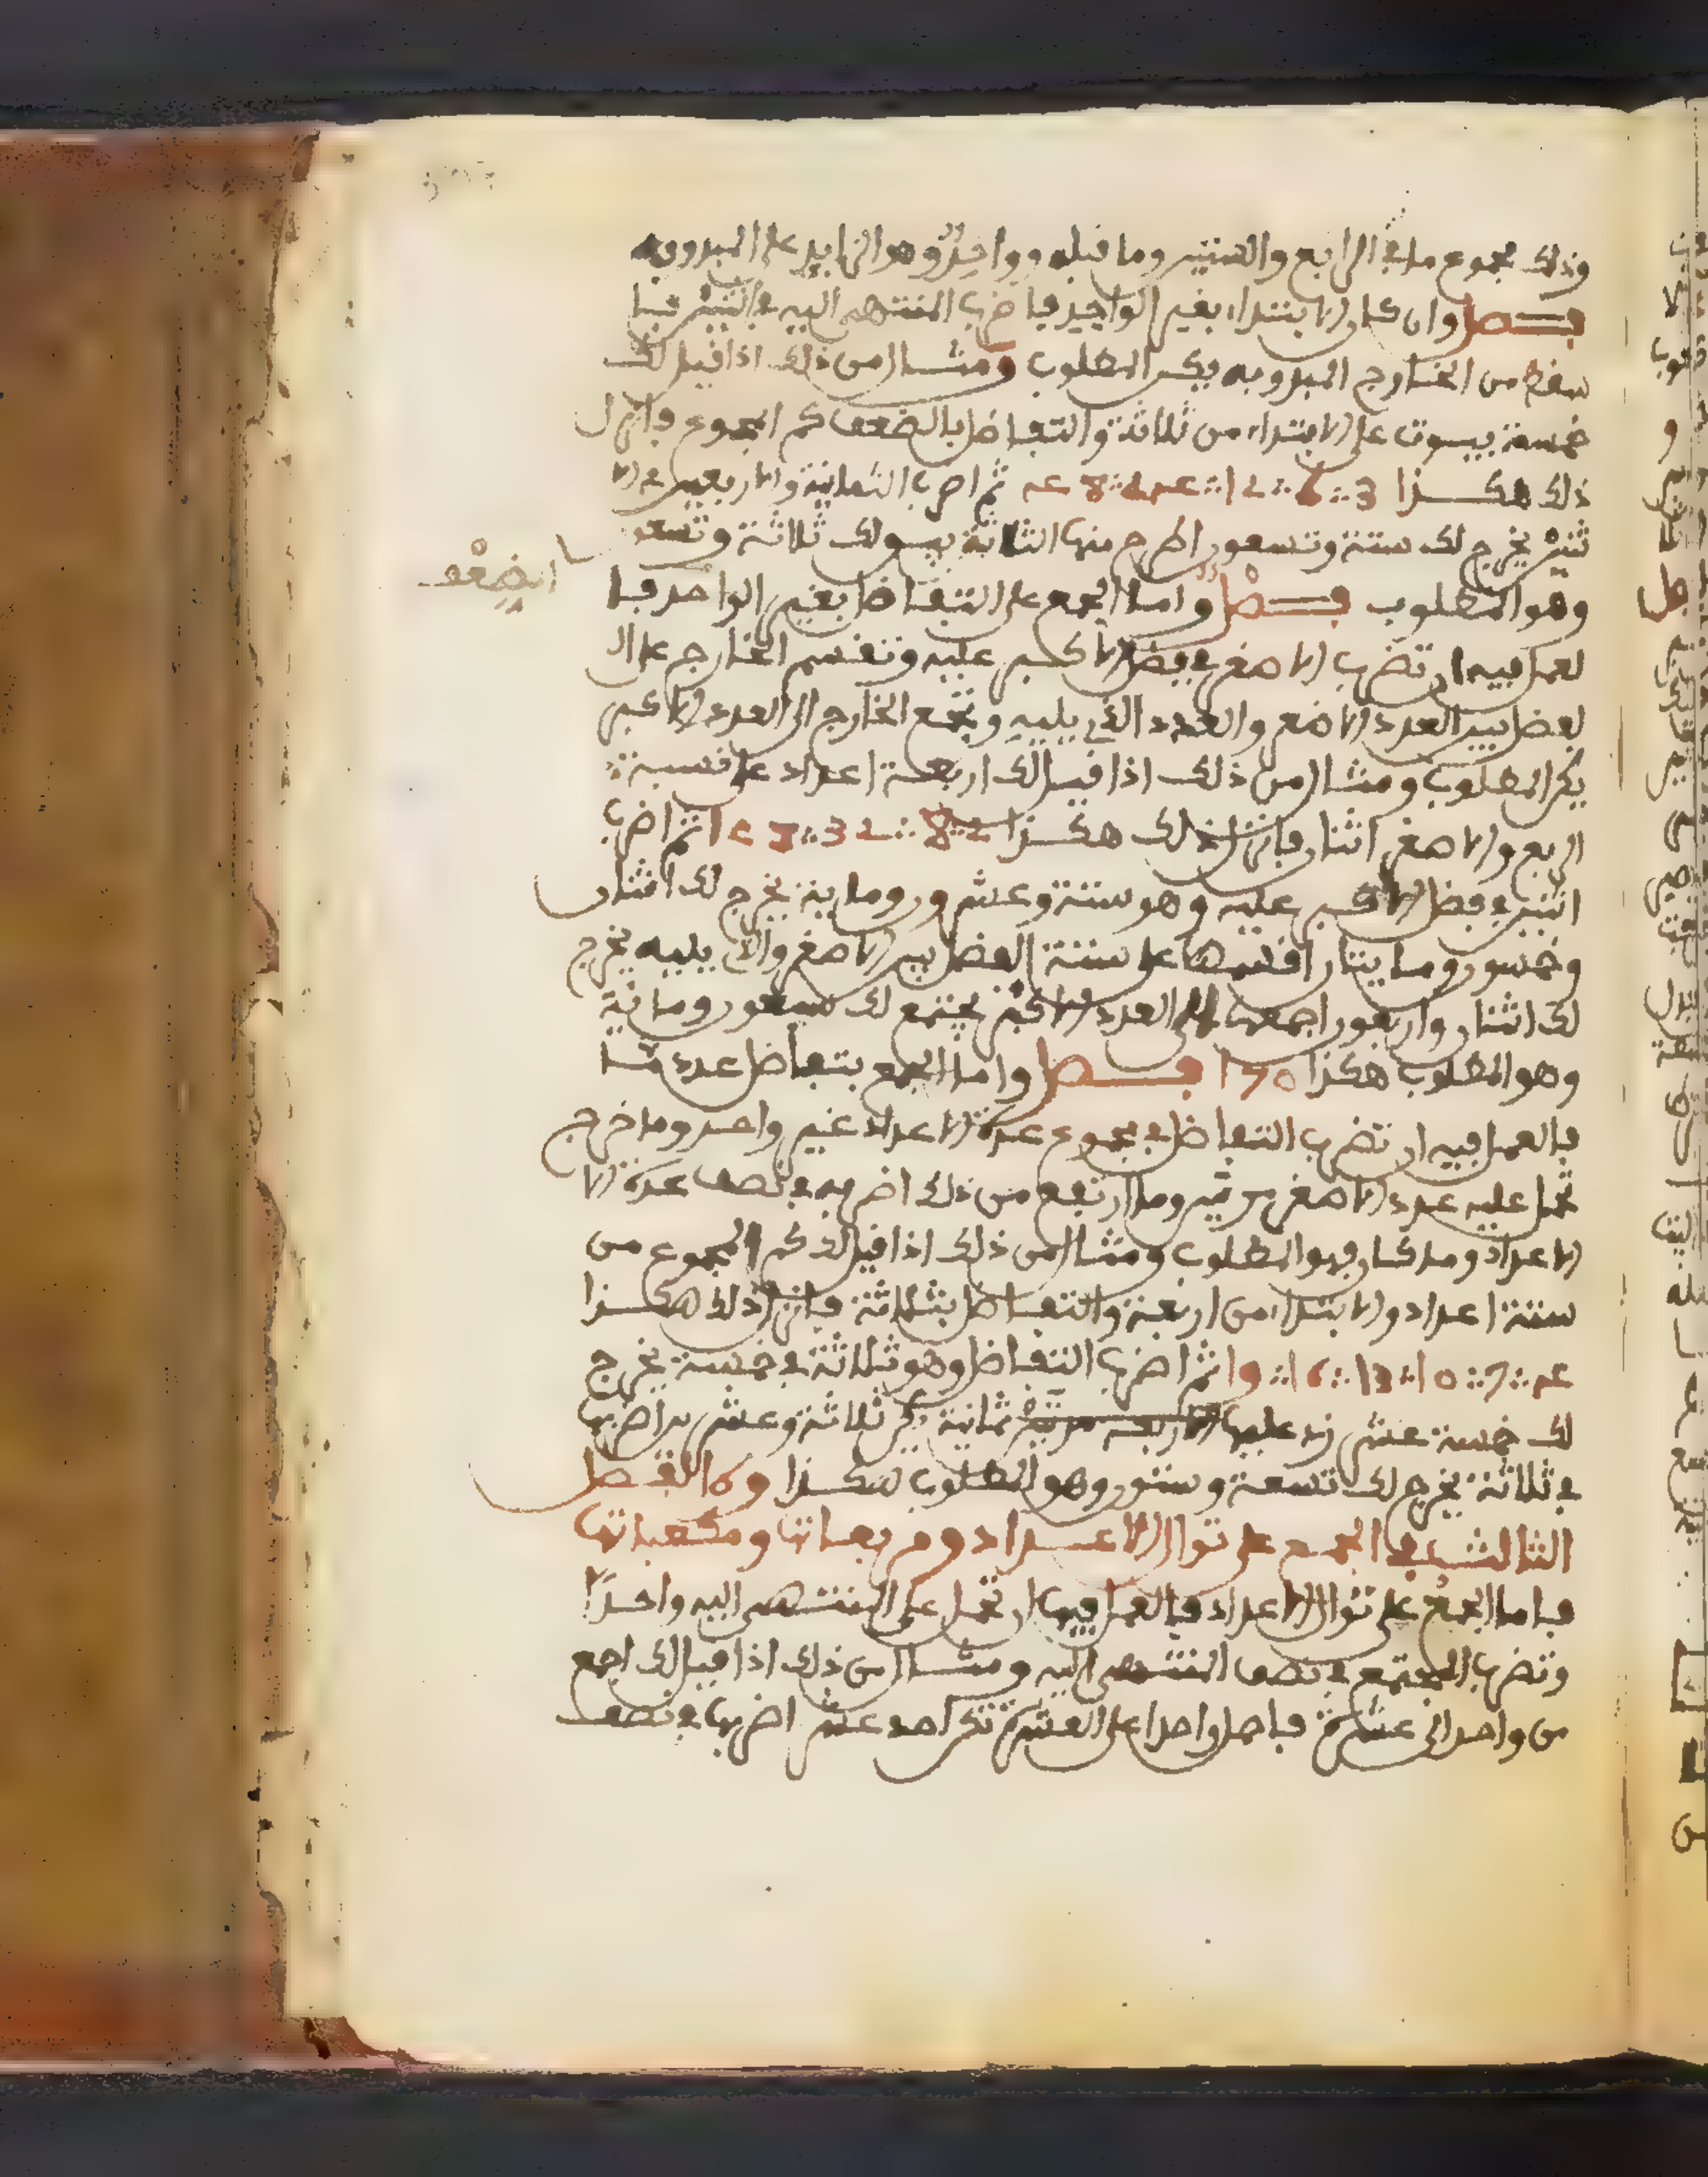 وذلك مجموع ما في الرابع والستين وما قبله وواحد وهو الزايد على المبدو به
فصل وان كان الابتداء بغير الواحد فاضرب المنتهى اليه في اثنين فما
سقط من الخارج المبدو به يكن المطلوب ومثال من ذلك اذا قيل لك
خمسة بيوت على الابتداء من ثلاثة والتفاضل بالضعف كم المجموع فانزل
ذلك هكذا 3 ؞ 6 ؞ 12 ؞ 24 ؞ 48 ثم اضرب الثمانية والاربعين في الا
ثنين يخرج لك ستة وتسعون اطرح منها الثلاثة يبقى لك ثلاثة وتسعون
الضعف
وهو المطلوب فصل واما الجمع على التفاضل بغير الواحد فا
لعمل فيه ان تضرب الاصغر في فضل الاكبر عليه وتقسم الخارج على ال
لفضل بين العدد الاصغر والعدد الذي يليه وتجمع الخارج الى العدد الاكبر
يكن المطلوب ومثال من ذلك اذا قيل لك اربعة اعداد على نسبة
الربع والاصغر اثنان فانزل ذلك هكذا 2 ؞ 8 ؞ 32 ؞ 128 ثم اضرب
اثنين في فضل الاكبر عليه وهو ستة وعشرون وماية يخرج لك اثنان
وخمسون ومايتان اقسمها على ستة الفضل بين الاصغر والذي يليه يخرج
لك اثنان واربعون اجمعها الى العدد الاكبر يجتمع لك سبعون وماية
وهو المطلوب هكذا 170 فصل واما الجمع بتفاضل عدد ما
فالعمل فيه ان تضرب التفاضل في مجموع عدة الاعداد غير واحد وما خرج
تحمل عليه عدد الاصغر مرتين وما ارتفع من ذلك اضربه في نصف عدة الا
الاعداد وما كان فهو المطلوب ومثال من ذلك اذا قيل لك كم المجموع من
ستة اعداد والابتداء من اربعة والتفاضل بثلاثة فانزل ذلك هكذا
4 ؞ 7 ؞ 10 ؞ 13 ؞ 16 ؞ 19 ثم اضرب التفاضل وهو ثلاثة في خمسة يخرج
لك خمسة عشر زد عليها الاربعة مرتين ثمانية يكن ثلاثة وعشرين اضربها
في ثلاثة يخرج لك تسعة وستون وهو المطلوب هكذا 69 الفصل
الثالث في الجمع على توالي الاعداد ومربعاتها ومكعباتها
فاما الجمع على توالي الاعداد فالعمل فيها ان تحمل على المنتهى اليه واحدا
وتضرب المجتمع في نصف المنتهى اليه ومثال من ذلك اذا قيل لك اجمع
من واحد الى عشرة فاحمل واحدا على العشرة تكن احد عشر اضربها في نصف